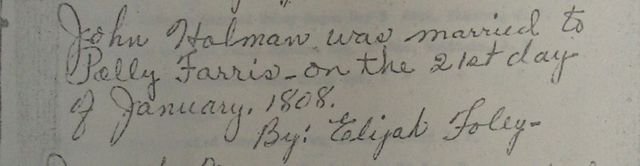 John Holman was married to
Polly Farris - on the 21st day
of January, 1808.
By: Elijah Foley -